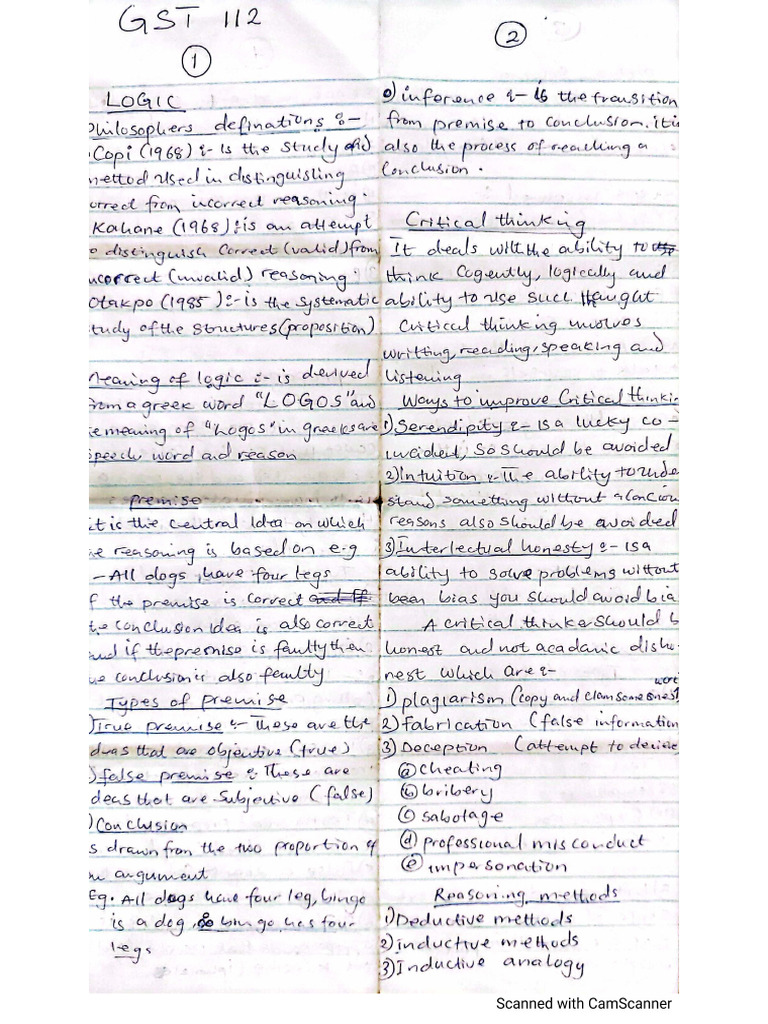 GST 112
1
LOGIC
Philosophers definations :-
Copi (1968) :- Is the study and
method used in distinguisting
orrect from incorrect reasoning.
Kahane (1968) :- is an attempt
o distinguish correct (valid) from
ncorrect (invalid) reasoning.
Otakpo (1985) :- is the systematic
tudy of the structures (proposition)
Meaning of logic :- is derived
from a greek word "LOGOS" and
e meaning of "Logos" in greeks are
speech, word and reason
premise
it is the central Idea on which
e reasoning is based on e.g
- All dogs, have four legs
f the premise is correct
the conclusion idea is also correct
and if the premise is faulty then
he conclusion is also faulty
Types of premise
)True premise :- These are the
ideas that are objective (true)
)false premise :- These are
ideas that are subjective (false)
)Conclusion
s drawn from the two proportion of
an argument
Eg. All dogs have four leg, bingo
is a dog, so bingo has four
legs
2
o) inference :- is the transition
from premise to conclusion. it is
also the process of reaching a
Conclusion.
Critical thinking
It deals with the ability to
think cogently, logically and
ability to use such thought
Critical thinking involves
writting, reading, speaking and
listening
Ways to improve Critical thinkin
1) Serendipity :- is a lucky co-
incident, so should be avoided
2) Intuition :- The ability to unde
stand something without a concious
reasons also should be avoided
3) Interlectual honesty :- is a
ability to solve problems without
been bias you should avoid bia
A critical thinker should b
honest and not acadamic disho-
nest which are :-
1) plagiarism (copy and claim someones work
2) fabrication (false information
3) Deception (attempt to decieve
a cheating
b bribery
c sabotage
d professional misconduct
e impersonation
Reasoning methods
1) Deductive methods
2) inductive methods
3) Inductive analogy
Scanned with CamScanner